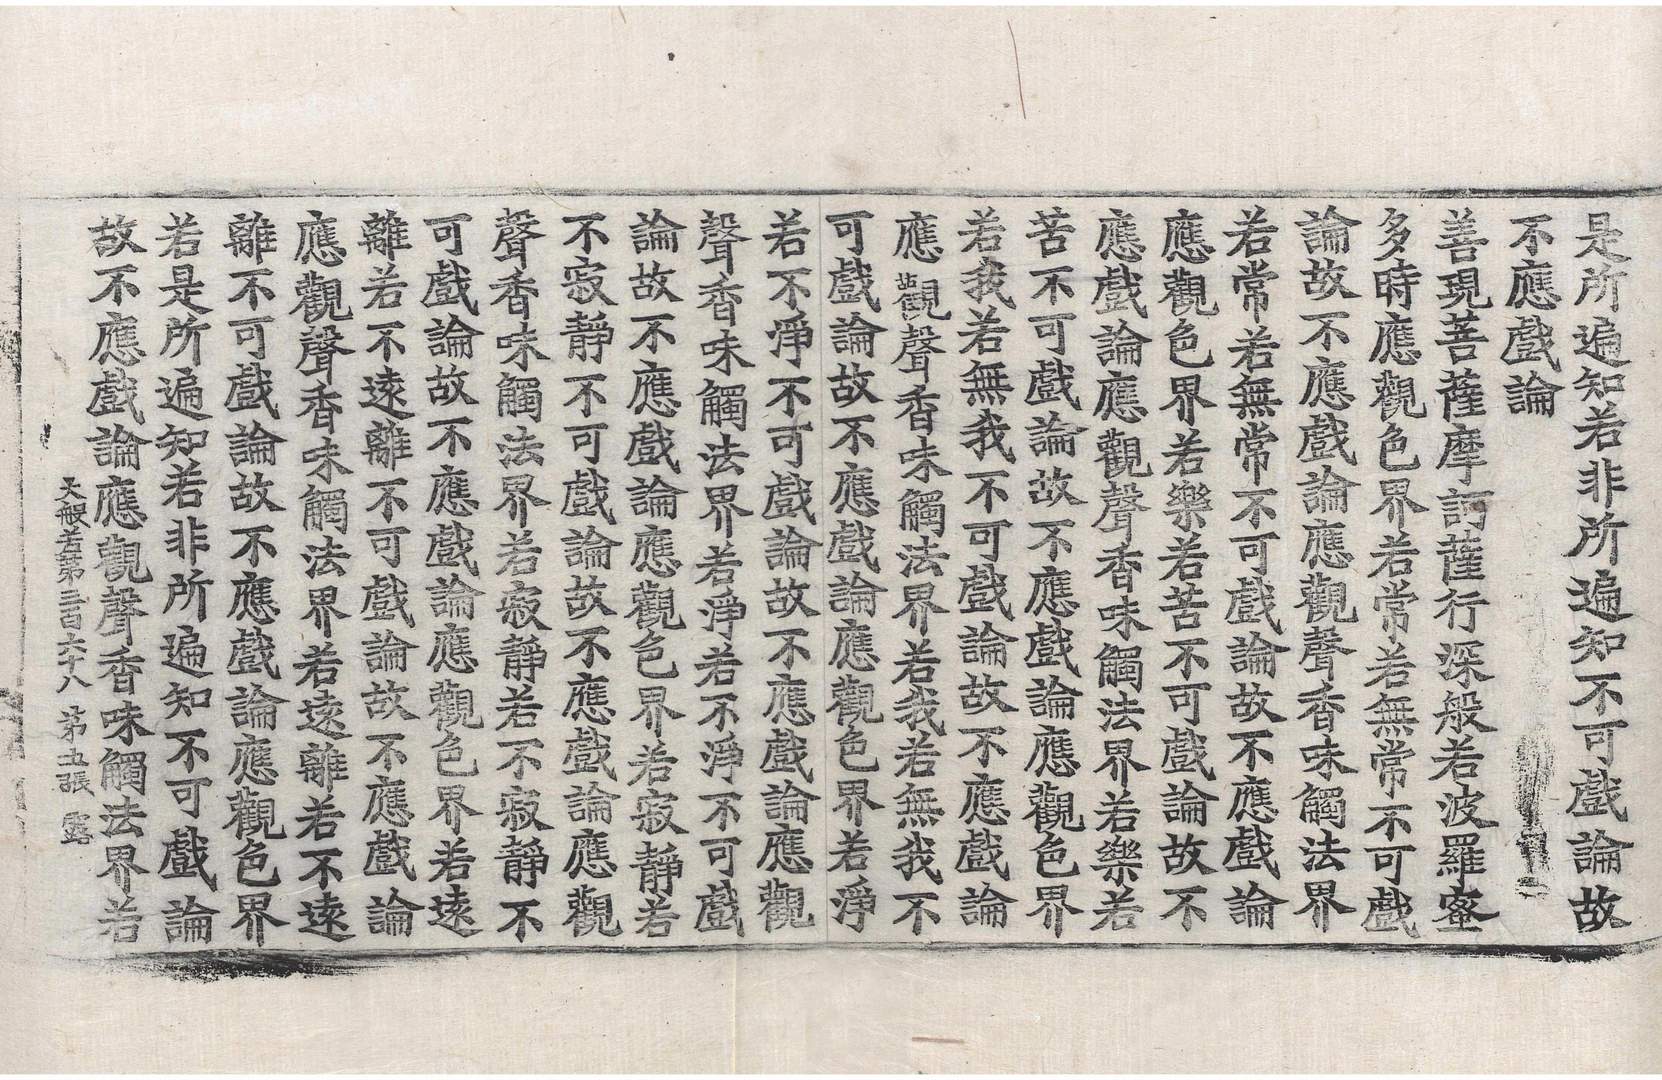 是所遍知若非所遍知不可戲論故
不應戲論
善現菩薩摩訶薩行深般若波羅蜜
多時應觀色界若常若無常不可戲
論故不應戲論應觀聲香味觸法界
若常若無常不可戲論故不應戲論
應觀色界若樂若苦不可戲論故不
應戲論應觀聲香味觸法界若樂若
苦不可戲論故不應戲論應觀色界
若我若無我不可戲論故不應戲論
應觀聲香味觸法界若我若無我不
可戲論故不應戲論應觀色界若淨
若不淨不可戲論故不應戲論應觀
聲香味觸法界若淨若不淨不可戲
論故不應戲論應觀色界若寂靜若
不寂靜不可戲論故不應戲論應觀
聲香味觸法界若寂靜若不寂靜不
可戲論故不應戲論應觀色界若遠
離若不遠離不可戲論故不應戲論
應觀聲香味觸法界若遠離若不遠
離不可戲論故不應戲論應觀色界
若是所遍知若非所遍知不可戲論
故不應戲論應觀聲香味觸法界若
大般若第三百六十八 第五張 露